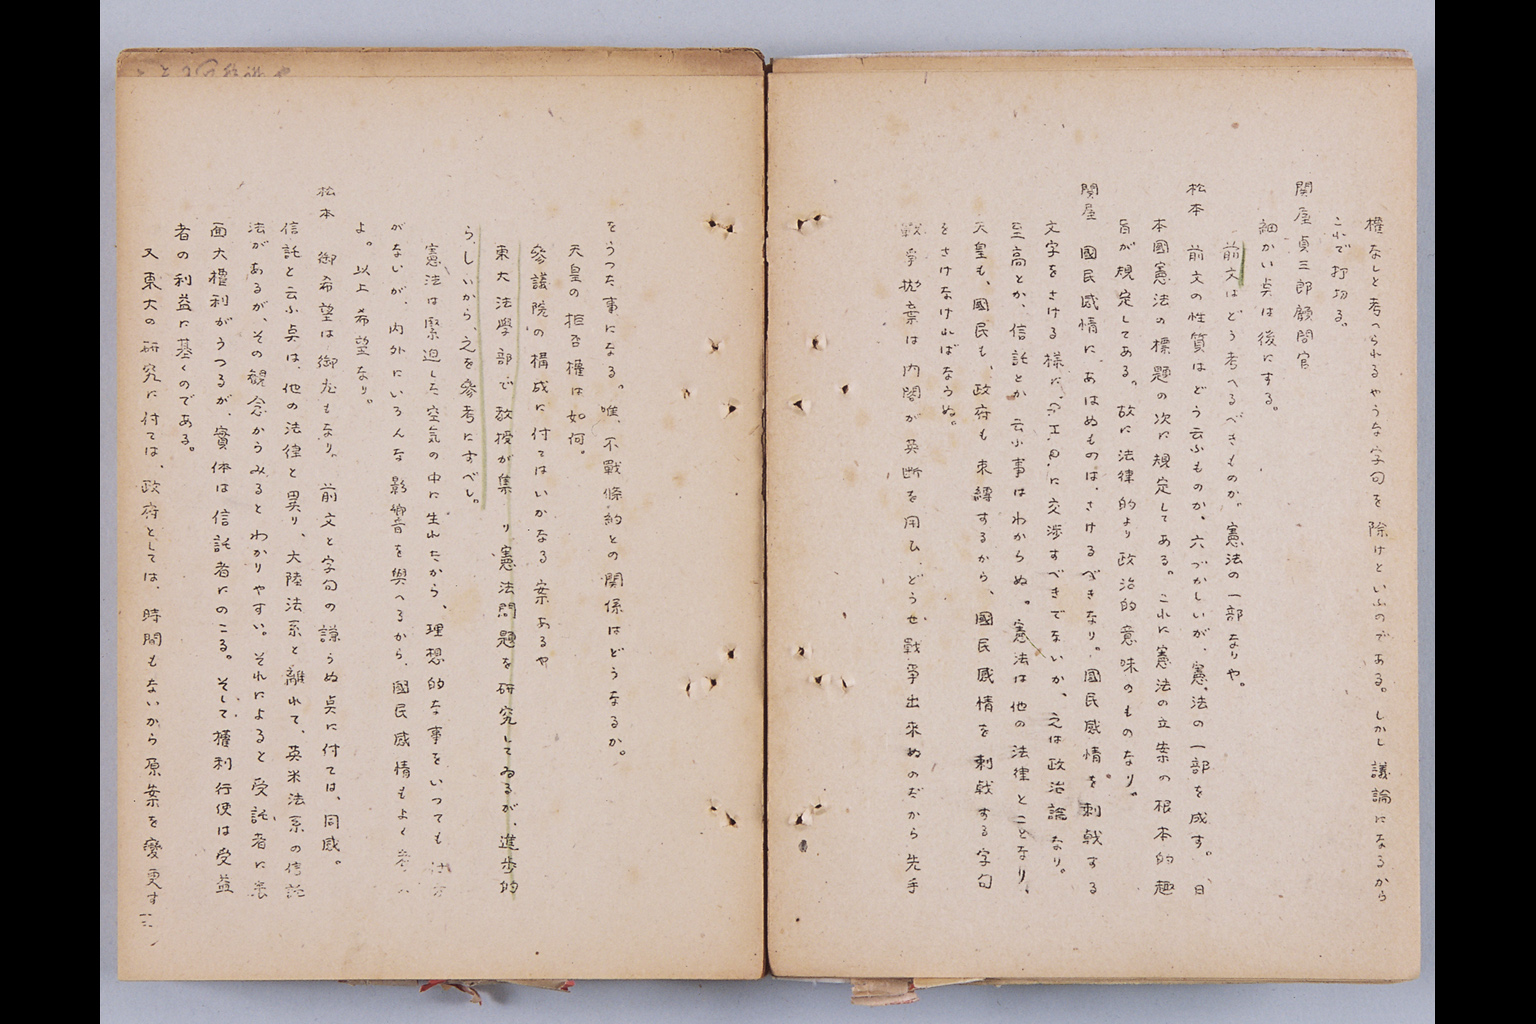 權なしと考へられるやうな字句を除けといふのである。しかし議論になるから
これで打切る。
関屋貞三郎顧問官
細かい点は後にする。
前文はどう考へるべきものか。憲法の一部なりや。
松本 前文の性質はどう云ふものか、六づかしいが、憲法の一部を成す。日
本國憲法の標題の次に規定してある。これに憲法の立案の根本的趣
旨が規定してある。故に法律的より政治的意味のものなり。
関屋 國民感情に、あはぬものは、さけるべきなり。國民感情を刺戟する
文字をさける様に、に交渉すべきでないか、之は政治論なり。
至高とか、信託とか云ふ事はわからぬ。憲法は他の法律とことなり、
天皇も、國民も、政府も束縛するから、國民感情を刺戟する字句
をさけなければならぬ。
戰爭抛棄は内閣が英断を用ひ、どうせ戰爭出來ぬのだから先手
をうつた事になる。唯、不戰條約との関係はどうなるか。
天皇の拒否權は如何。
參議院の構成に付てはいかなる案あるや
東大法學部で教授が集り憲法問題を研究してゐるが、進歩的
らしいから、之を參考にすべし。
憲法は緊迫した空気の中に生れたから、理想的な事をいつても仕方
がないが、内外にいろんな影響を與へるから、國民感情もよく
よ。以上希望なり。
松本 御希望は御尤もなり。前文と字句の謙らぬ点に付ては、同感。
信託と云ふ点は、他の法律と異り、大陸法系と離れて、英米法系の信託
法があるが、その観念からみるとわかりやすい。それによると受託者に表
面大權利がうつるが、實体は信託者にのこる。そして權利行使は受益
者の利益に基くのである。
又東大の研究に付ては、政府としては、時間もないから原案を變更す